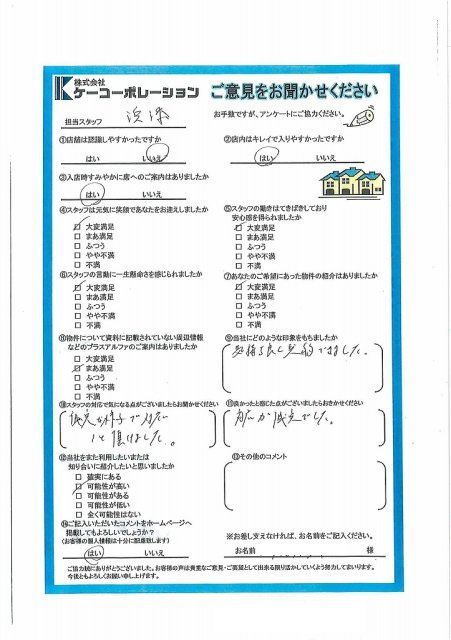 株式会社
ケーコーポレーション
ご意見をお聞かせください
担当スタッフ
お手数ですが、アンケートにご協力ください。
①店舗は認識しやすかったですか
はい いいえ
②店内はキレイで入りやすかったですか
はい いいえ
③入店時すみやかに席へのご案内はありましたか
はい いいえ
④スタッフは元気に笑顔であなたをお迎えしましたか
□ 大変満足
□ まあ満足
□ ふつう
□ やや不満
□ 不満
⑤スタッフの働きはてきぱきしており
安心感を得られましたか
□ 大変満足
□ まあ満足
□ ふつう
□ やや不満
□ 不満
⑥スタッフの言動に一生懸命さを感じられましたか
□ 大変満足
□ まあ満足
□ ふつう
□ やや不満
□ 不満
⑦あなたのご希望にあった物件の紹介はありましたか
□ 大変満足
□ まあ満足
□ ふつう
□ やや不満
□ 不満
⑧物件について資料に記載されていない周辺情報
などのプラスアルファのご案内はありましたか
□ 大変満足
□ まあ満足
□ ふつう
□ やや不満
□ 不満
当社にどのような印象をもちましたか
気持ち良く契約できました。
⑩スタッフの対応で気になる点がございましたらお聞かせください
⑪良かったと感じた点がございましたらおきかせください
⑫当社をまた利用したいまたは
知り合いに紹介したいと思いましたか
□ 確実にある
□ 可能性が高い
□ 可能性がある
□ 可能性が低い
□ 全く可能性はない
⑬その他のコメント
⑭ご記入いただいたコメントをホームページへ
掲載してもよろしいでしょうか?
(お客様の個人情報は十分に配慮致します)
はい いいえ
※お差し支えなければ、お名前をご記入ください。
お名前 様
ご協力誠にありがとうございました。お客様の声は貴重なご意見・ご要望として出来る限り活かしていくよう努力してまいります。
今後ともよろしくお願い申し上げます。